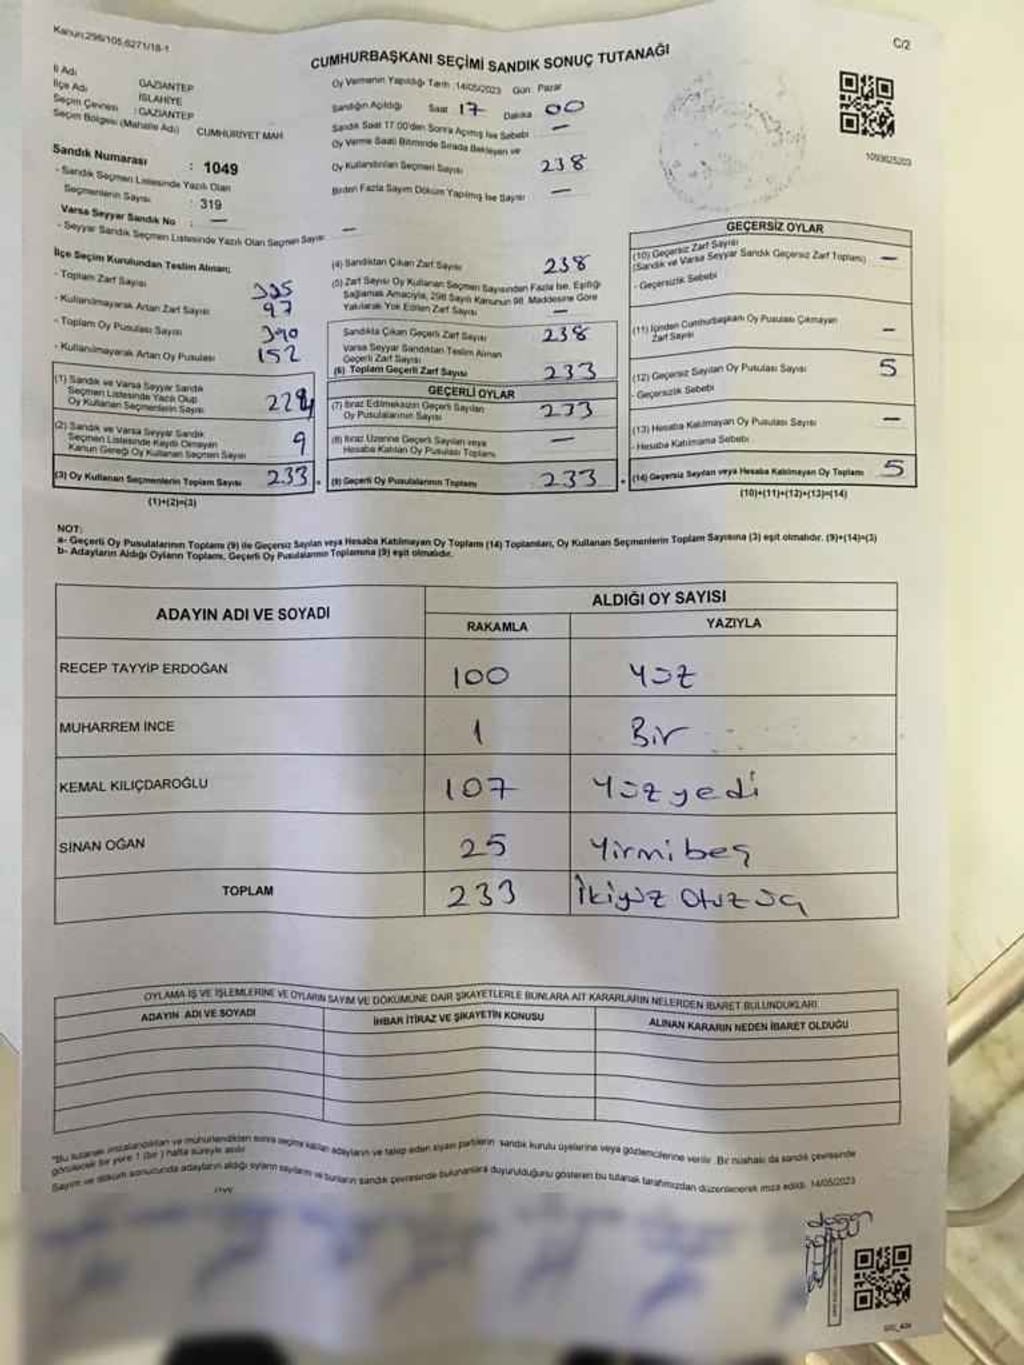 Kanun:298/105,6271/18-1
C/2
CUMHURBAŞKANI SEÇİMİ SANDIK SONUÇ TUTANAĞI
İl Adı GAZİANTEP
İlçe Adı İSLAHİYE
Seçim Çevresi : GAZİANTEP
Seçim Bölgesi (Mahalle Adı) CUMHURİYET MAH
Sandık Numarası : 1049
- Sandık Seçmen Listesinde Yazılı Olan
Seçmenlerin Sayısı : 319
Varsa Seyyar Sandık No : —
- Seyyar Sandık Seçmen Listesinde Yazılı Olan Seçmen Sayısı —
Oy Vermenin Yapıldığı Tarih :14/05/2023 Gün: Pazar
Sandığın Açıldığı Saat 17 Dakika 00
Sandık Saat 17.00'den Sonra Açılmış İse Sebebi —
Oy Verme Saati Bitiminde Sırada Bekleyen ve
Oy Kullandırılan Seçmen Sayısı 238
Birden Fazla Sayım Döküm Yapılmış İse Sayısı —
1093625203
İlçe Seçim Kurulundan Teslim Alınan;
- Toplam Zarf Sayısı 335
- Kullanılmayarak Artan Zarf Sayısı 97
- Toplam Oy Pusulası Sayısı 390
- Kullanılmayarak Artan Oy Pusulası 152
(1) Sandık ve Varsa Seyyar Sandık
Seçmen Listesinde Yazılı Olup
Oy Kullanan Seçmenlerin Sayısı
(2) Sandık ve Varsa Seyyar Sandık
Seçmen Listesinde Kayıtlı Olmayan
Kanun Gereği Oy Kullanan Seçmen Sayısı 9
(3) Oy Kullanan Seçmenlerin Toplam Sayısı 233
(1)+(2)=(3)
(4) Sandıktan Çıkan Zarf Sayısı 238
(5) Zarf Sayısı Oy Kullanan Seçmen Sayısından Fazla İse, Eşitliği
Sağlamak Amacıyla, 298 Sayılı Kanunun 98. Maddesine Göre
Yakılarak Yok Edilen Zarf Sayısı —
Sandıkta Çıkan Geçerli Zarf Sayısı 238
Varsa Seyyar Sandıktan Teslim Alınan
Geçerli Zarf Sayısı
(6) Toplam Geçerli Zarf Sayısı 233
GEÇERLİ OYLAR
(7) İtiraz Edilmeksizin Geçerli Sayılan
Oy Pusulalarının Sayısı 233
(8) İtiraz Üzerine Geçerli Sayılan veya
Hesaba Katılan Oy Pusulası Toplamı —
(9) Geçerli Oy Pusulalarının Toplamı 233
GEÇERSİZ OYLAR
(10) Geçersiz Zarf Sayısı
(Sandık ve Varsa Seyyar Sandık Geçersiz Zarf Toplamı) —
- Geçersizlik Sebebi
(11) İçinden Cumhurbaşkanı Oy Pusulası Çıkmayan
Zarf Sayısı —
(12) Geçersiz Sayılan Oy Pusulası Sayısı 5
- Geçersizlik Sebebi
(13) Hesaba Katılmayan Oy Pusulası Sayısı —
- Hesaba Katılmama Sebebi
(14) Geçersiz Sayılan veya Hesaba Katılmayan Oy Toplamı 5
(10)+(11)+(12)+(13)=(14)
NOT:
a- Geçerli Oy Pusulalarının Toplamı (9) ile Geçersiz Sayılan veya Hesaba Katılmayan Oy Toplamı (14) Toplamları, Oy Kullanan Seçmenlerin Toplam Sayısına (3) eşit olmalıdır. (9)+(14)=(3)
b- Adayların Aldığı Oyların Toplamı, Geçerli Oy Pusulalarının Toplamına (9) eşit olmalıdır.
ADAYIN ADI VE SOYADI
ALDIĞI OY SAYISI
RAKAMLA YAZIYLA
RECEP TAYYİP ERDOĞAN 100 Yüz
MUHARREM İNCE 1 Bir
KEMAL KILIÇDAROĞLU 107 Yüz yedi
SİNAN OĞAN 25 Yirmi beş
TOPLAM 233 İkiyüz Otuz üç
OYLAMA İŞ VE İŞLEMLERİNE VE OYLARIN SAYIM VE DÖKÜMÜNE DAİR ŞİKAYETLERLE BUNLARA AİT KARARLARIN NELERDEN İBARET BULUNDUKLARI
ADAYIN ADI VE SOYADI İHBAR İTİRAZ VE ŞİKAYETİN KONUSU ALINAN KARARIN NEDEN İBARET OLDUĞU
"Bu tutanak imzalandıktan ve mühürlendikten sonra seçime katılan adayların ve talep eden siyasi partilerin sandık kurulu üyelerine veya gözlemcilerine verilir. Bir nüshası da sandık çevresinde
görülecek bir yere 1 (bir) hafta süreyle asılır
Sayım ve döküm sonucunda adayların aldığı oyların sayılarını ve bunların sandık çevresinde bulunanlara duyurulduğunu gösteren bu tutanak tarafımızdan düzenlenerek imza edildi. 14/05/2023